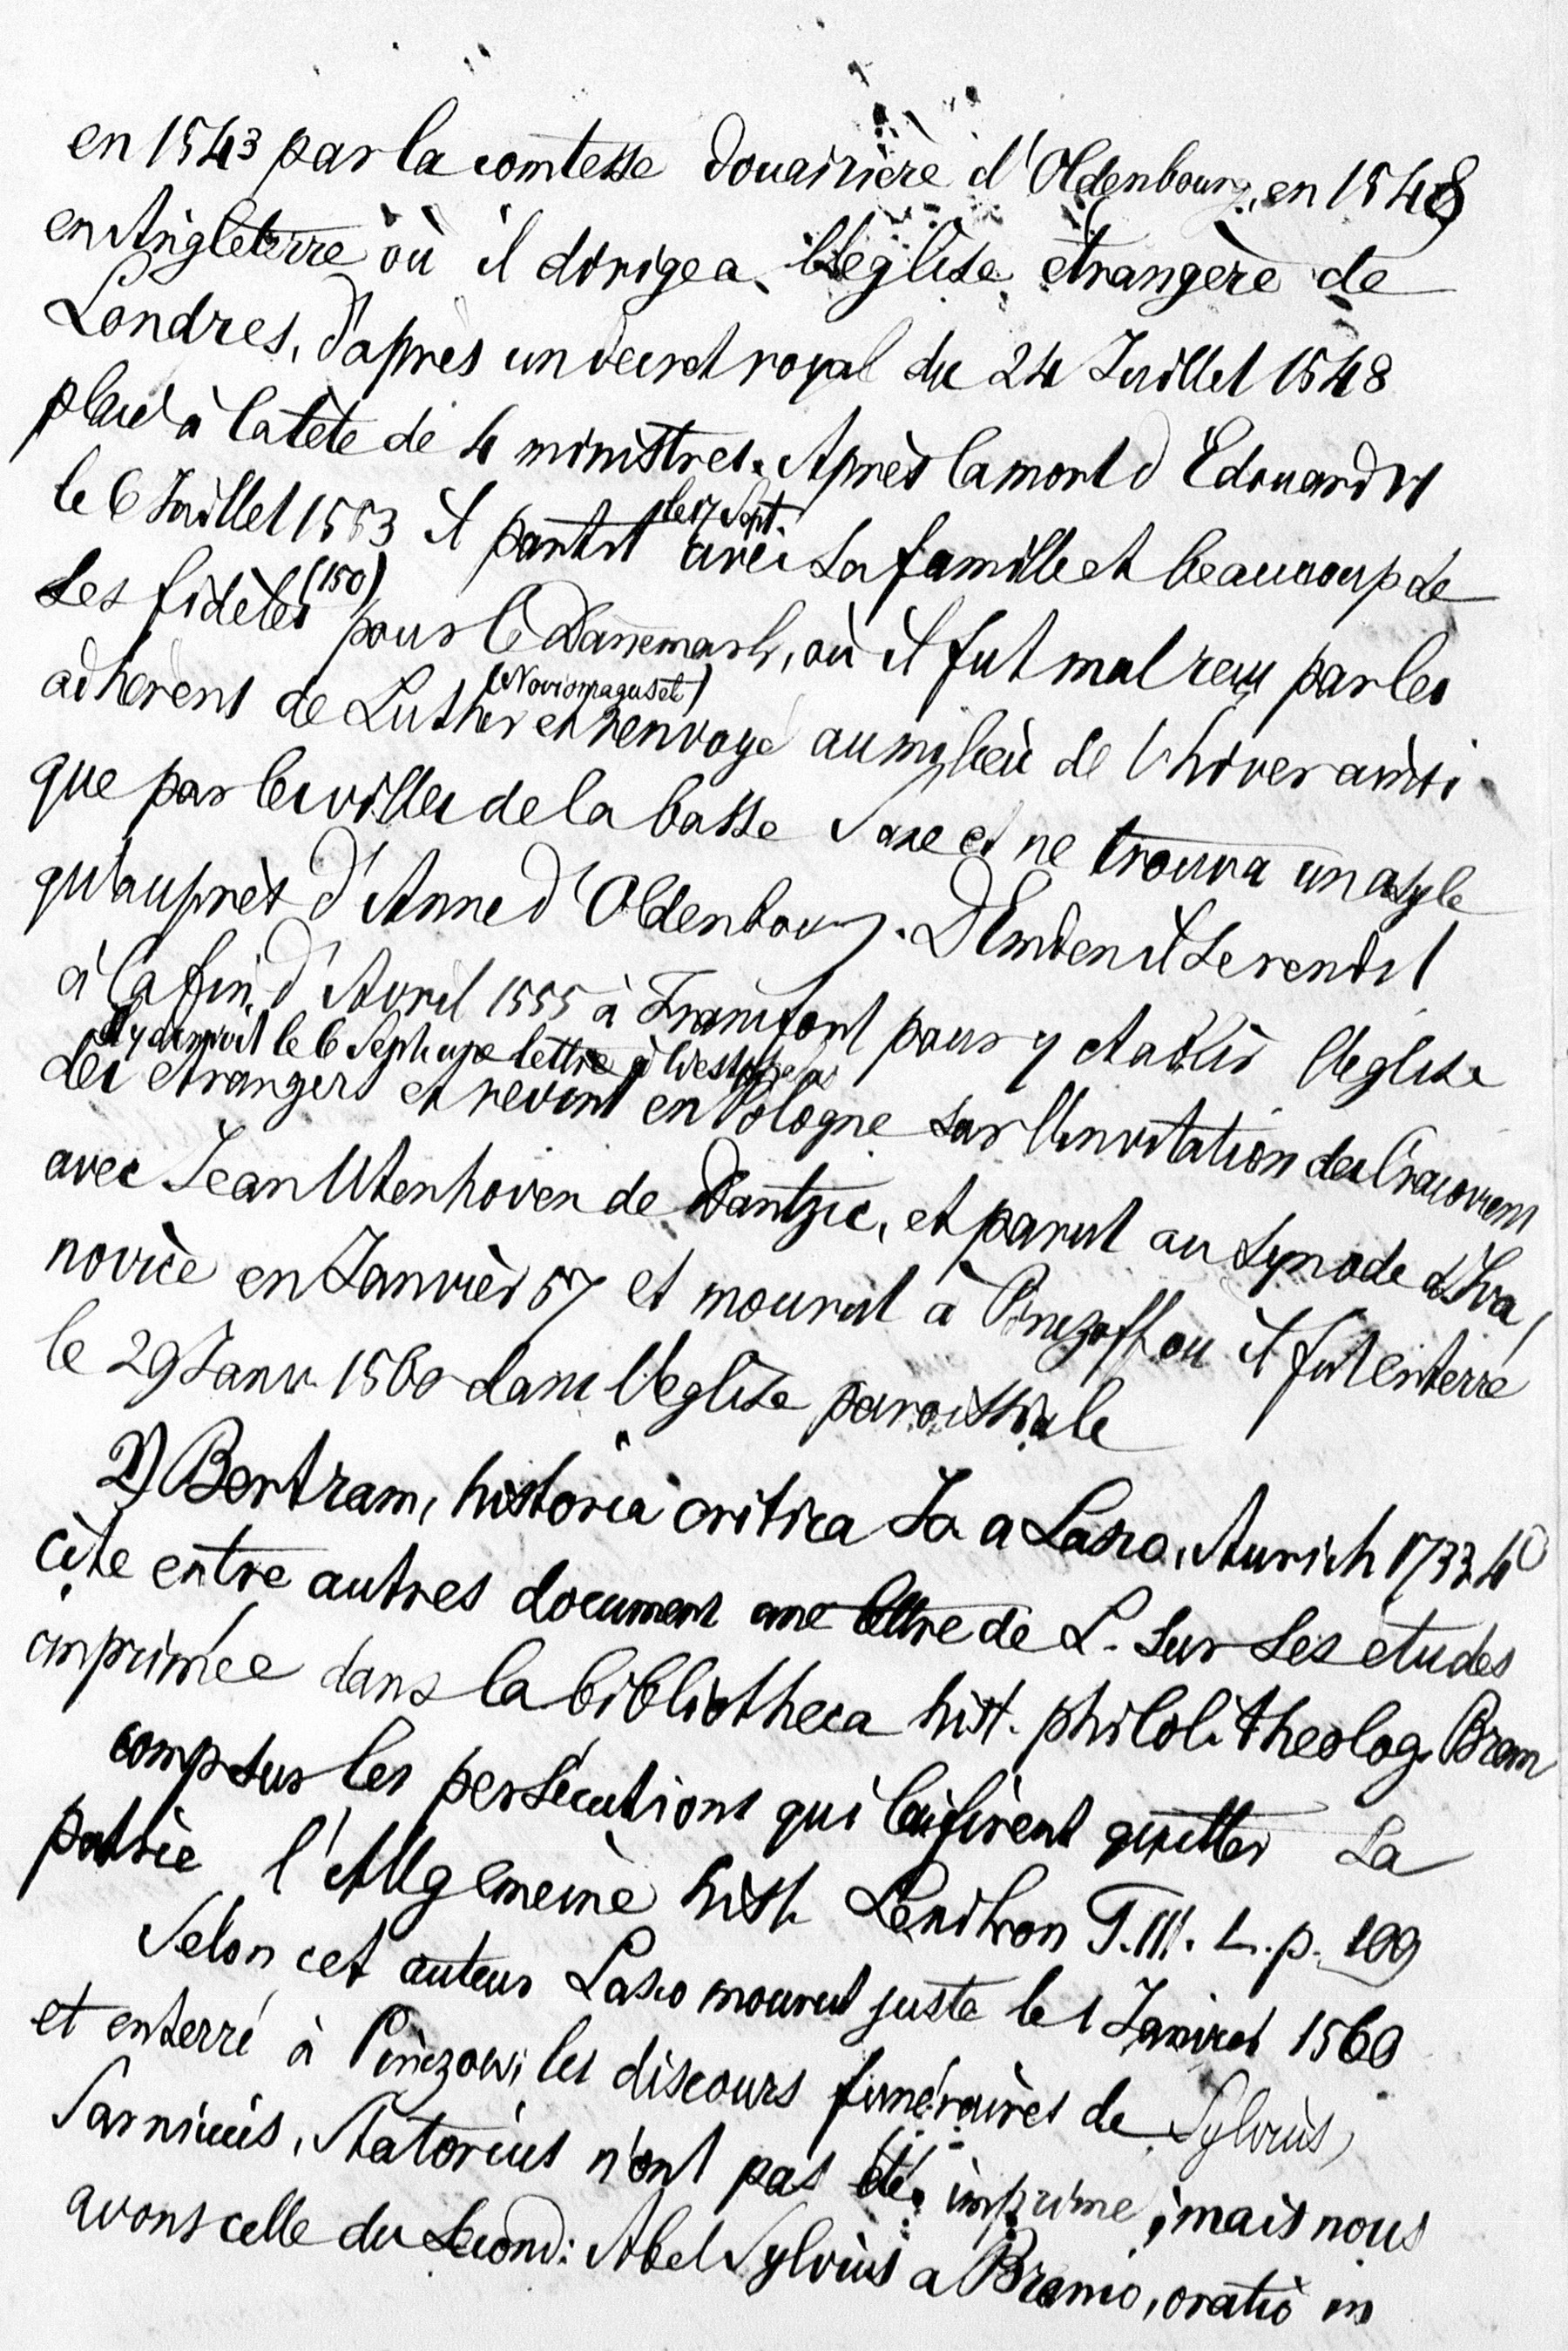 en 1543 par la comtesse douairière d'Oldenbourg, en 1548
en Angleterre où il dirigea l'eglise étrangère de
Londres, d'après un decret royal du 24 Juillet 1548
placé à la tête de 4 ministres. Après la mort d'Edouard VI
le 6 Juillet 1553 il partit le 17 Sept. avec sa famille et beaucoup de
ses fidèles (150) pour le Dannemark, où il fut mal reçu par les
adhérens de Luther (Noviomagus et) et renvoyé au milieu de l'hiver ainsi
que par les villes de la basse Saxe et ne trouva un asyle
qu'auprès d'Anne d'Oldenbourg. D'Emden il se rendit
à la fin d'Avril 1555 à Francfort pour y etablir l'eglise
Il y le 6 Sept une lettre à Westphalus
des etrangers et revint en Pologne sur l'invitation des Cracoviens
avec Jean Utenhoven de Dantzic, et parut au synode d'Iva
novice en Janvier 57 et mourut à Pinczoff ou il fut enterré
le 29 Janv. 1560 dans l'eglise paroissiale
2) Bertram, historia critica Jo a Lasco, Aurich 1733 4°
cite entre autres document une lettre de L. sur ses etudes
imprimée dans la bibliotheca hist. philol. theolog. Brem
comp sur les persécutions qui lui firent quitter sa
patrie l'Allgemeine hist. Lexikon T. III. L. p. 109
Selon cet auteur Lasco mourut juste le 1 Janvier 1560
et enterré à Pinczow; les discours funéraires de Sylvius,
Sarnicius, Statorius n'ont pas été imprimé; mais nous
avons celle du second: Abel Sylvius a Bramo, oratio in